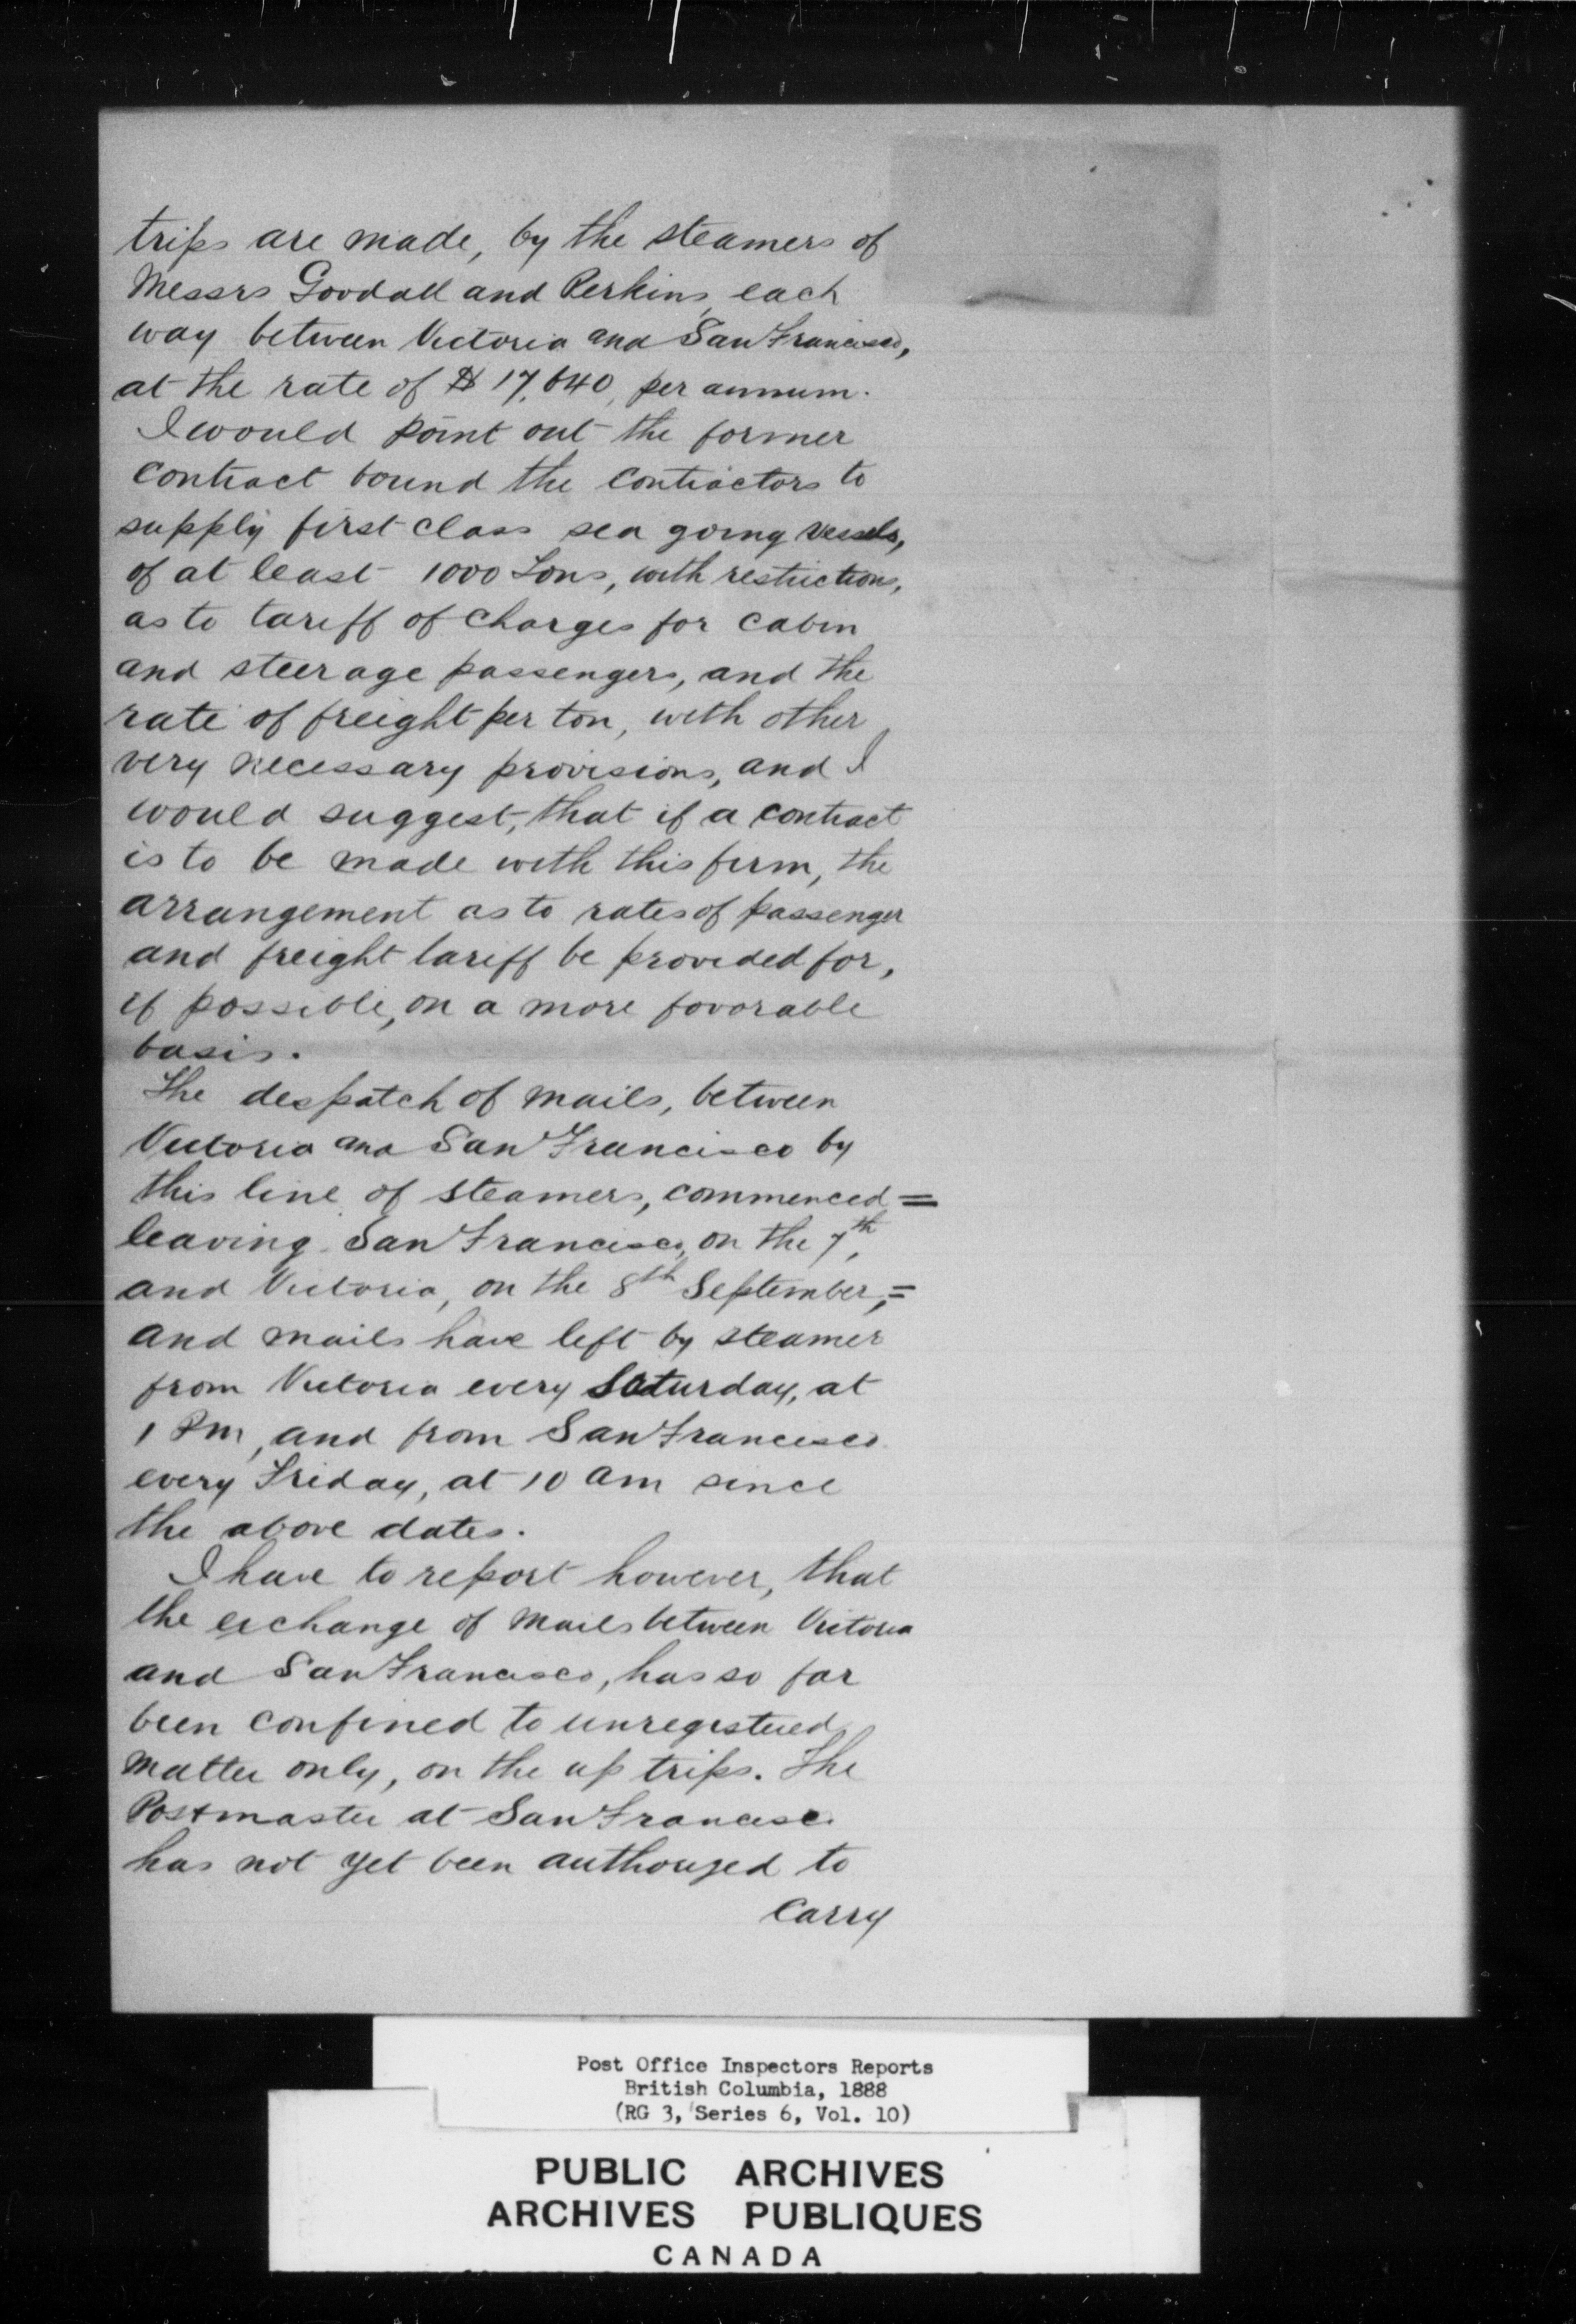 trips are made, by the steamers of
Messrs Goodall and Perkins, each
way between Victoria and San Francisco,
at the rate of $ 17,640, per annum.
I would point out the former
contract bound the contractors to
supply first class sea going vessels,
of at least 1000 Tons, with restrictions,
as to tariff of charges for cabin
and steerage passengers, and the
rate of freight per ton, with other
very necessary provisions, and I
would suggest, that if a contract
is to be made with this firm, the
arrangement as to rates of passenger
and freight tariff be provided for,
if possible, on a more favorable
basis.
The despatch of mails, between
Victoria and San Francisco by
this line of steamers, commenced =
leaving San Francisco, on the 7th,
and Victoria, on the 8th September, =
and mails have left by steamer
from Victoria every Saturday, at
1 Pm, and from San Francisco
every Friday, at 10 am since
the above dates.
I have to report however, that
the exchange of mails between Victoria
and San Francisco, has so far
been confined to unregistered
matter only, on the up trips. The
Postmaster at San Francisco
has not yet been authorized to
carry
Post Office Inspectors Reports
British Columbia, 1888
(RG 3, Series 6, Vol. 10)
PUBLIC ARCHIVES
ARCHIVES PUBLIQUES
CANADA